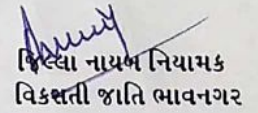 જિલ્લા નાયબ નિયામક
વિકસતી જાતિ ભાવનગર